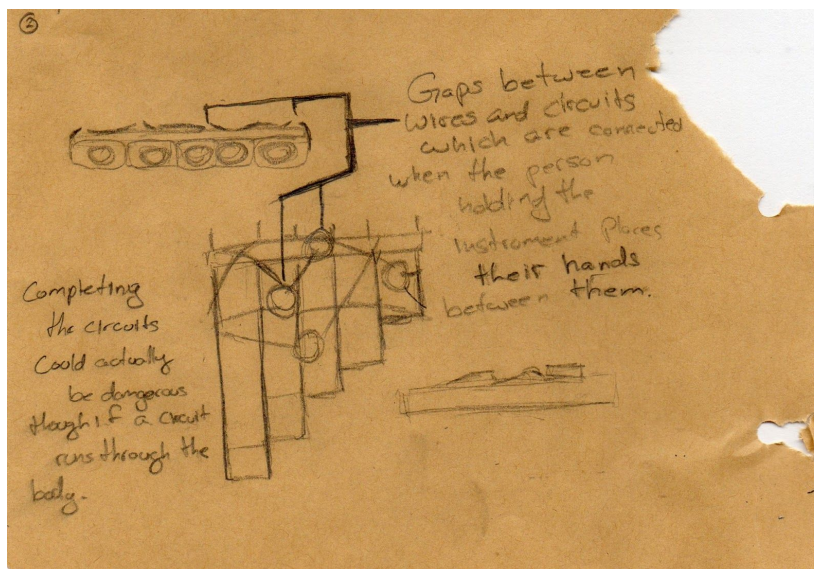 2
Gaps between
wires and circuits
which are connected
when the person
holding the
instrument places
their hands
between them.
Completing
the circuits
Could actually
be dangerous
though if a circuit
runs through the
body.